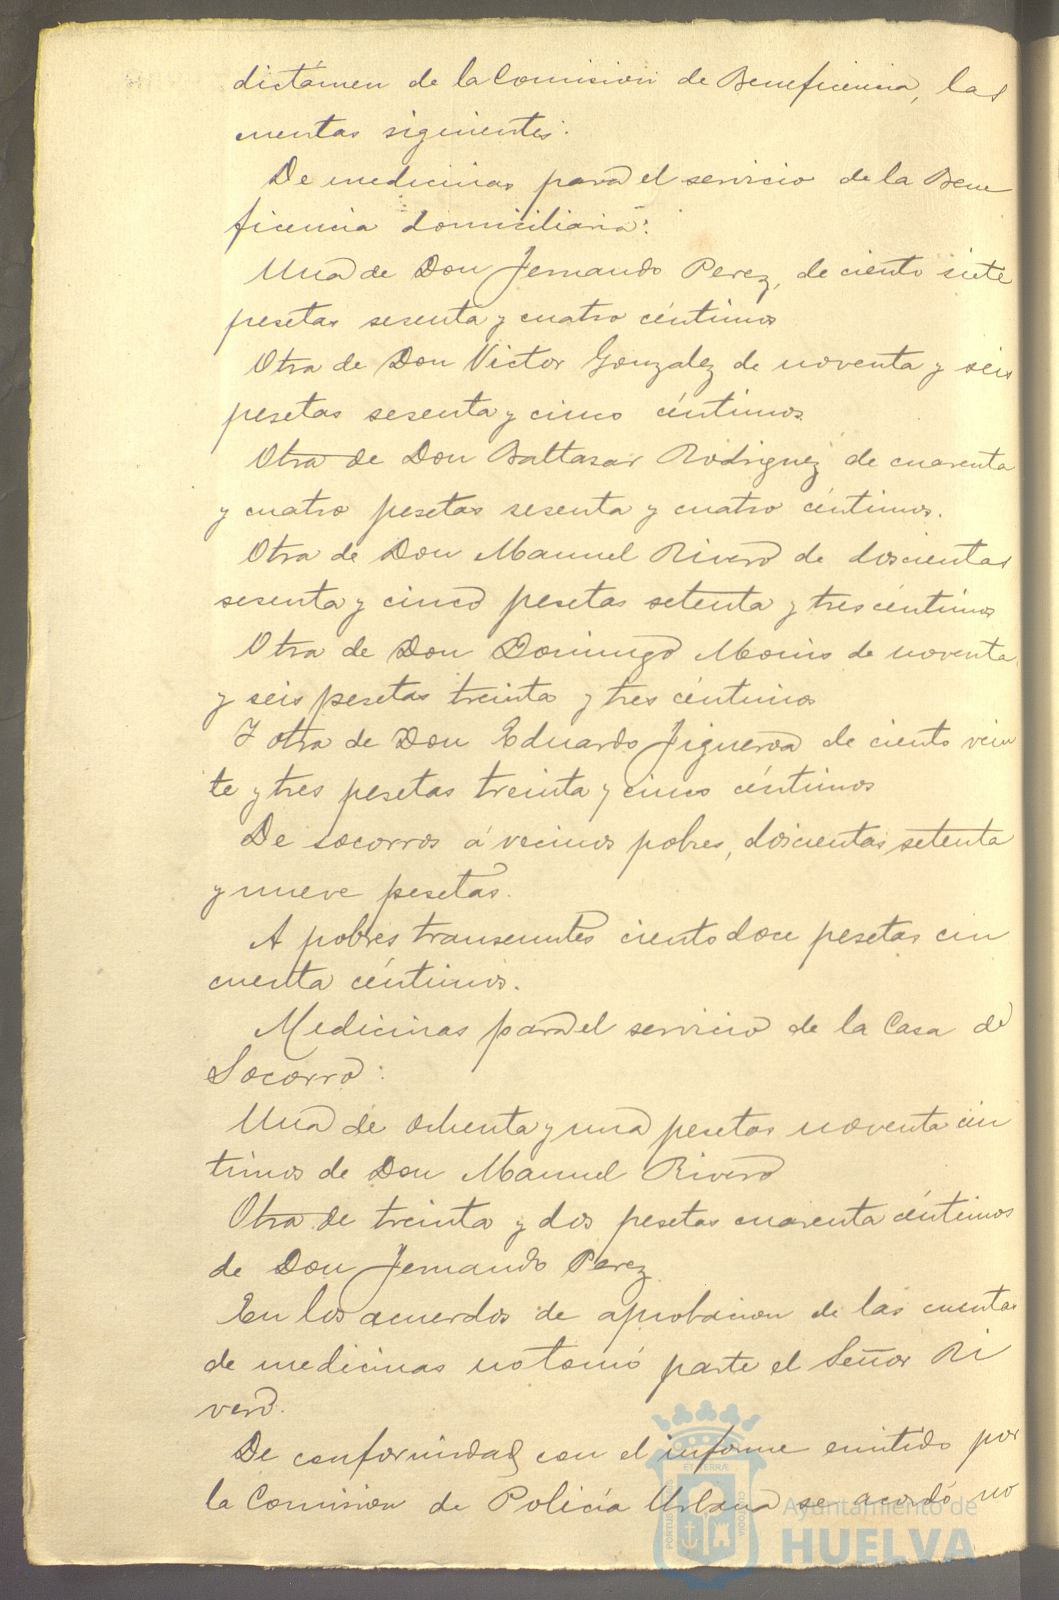 dictámen de la Comision de Beneficencia, las
cuentas siguientes:
De medicinas para el servicio de la Bene
ficencia domiciliaria:
Una de Don Fernando Perez, de ciento siete
pesetas sesenta y cuatro céntimos
Otra de Don Victor Gonzalez de noventa y seis
pesetas sesenta y cinco céntimos
Otra de Don Baltasar Rodriguez de cuarenta
y cuatro pesetas sesenta y cuatro céntimos.
Otra de Don Manuel Rivero de doscientas
sesenta y cinco pesetas setenta y tres céntimos
Otra de Don Domingo de noventa
y seis pesetas treinta y tres céntimos
Y otra de Don Eduardo Figueroa de ciento vein
te y tres pesetas treinta y cinco céntimos
De socorros á vecinos pobres, doscientas setenta
y nueve pesetas.
A pobres transeuntes ciento doce pesetas cin
cuenta céntimos.
Medicinas para el servicio de la Casa de
Socorro:
Una de ochenta y una pesetas noventa cén
timos de Don Manuel Rivero
Otra de treinta y dos pesetas cuarenta céntimos
de Don Fernando Perez
En los acuerdos de aprobacion de las cuentas
de medicinas no tomó parte el Señor Ri
vero.
De conformidad con el informe emitido por
la Comision de Policía Urbana se acordó no
Ayuntamiento de
HUELVA